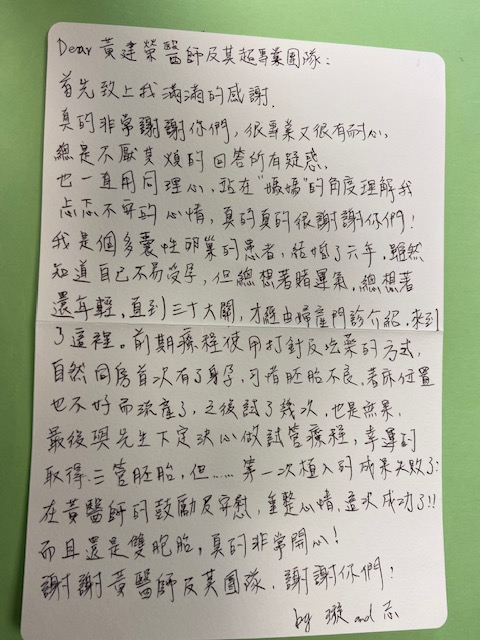 Dear 黃建榮醫師及其超專業團隊：
首先致上我滿滿的感謝.
真的非常謝謝你們，很專業又很有耐心，
總是不厭其煩的回答所有疑惑，
也一直用同理心，站在"媽媽"的角度理解我
忐忑不安的心情，真的真的很謝謝你們！
我是個多囊性卵巢的患者，結婚了六年，雖然
知道自己不易受孕，但總想著賭運氣，總想著
還年輕，直到三十大關，才經由婦產門診介紹，來到
了這裡。前期療程使用打針及吃藥的方式，
自然同房首次有了身孕，可惜胚胎不良、著床位置
也不好而流產了，之後試了幾次，也是無果，
最後與先生下定決心做試管療程，幸運的
取得三管胚胎，但......第一次植入的成果失敗了：
在黃醫師的鼓勵及安慰，重整心情，這次成功了!!
而且還是雙胞胎，真的非常開心！
謝謝黃醫師及其團隊，謝謝你們！
by 璇 and 志